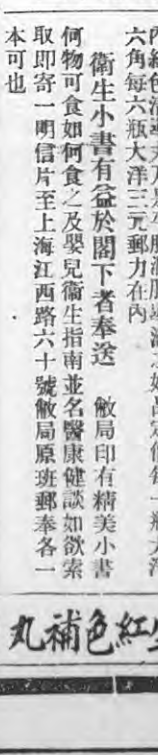 六角每六瓶大洋三元郵力在內
衛生小書有益於閣下者奉送　敝局印有精美小書
何物可食如何食之及嬰兒衛生指南並名醫康健談如欲索
取即寄一明信片至上海江西路六十號敝局原班郵奉各一
本可也
紅色補丸